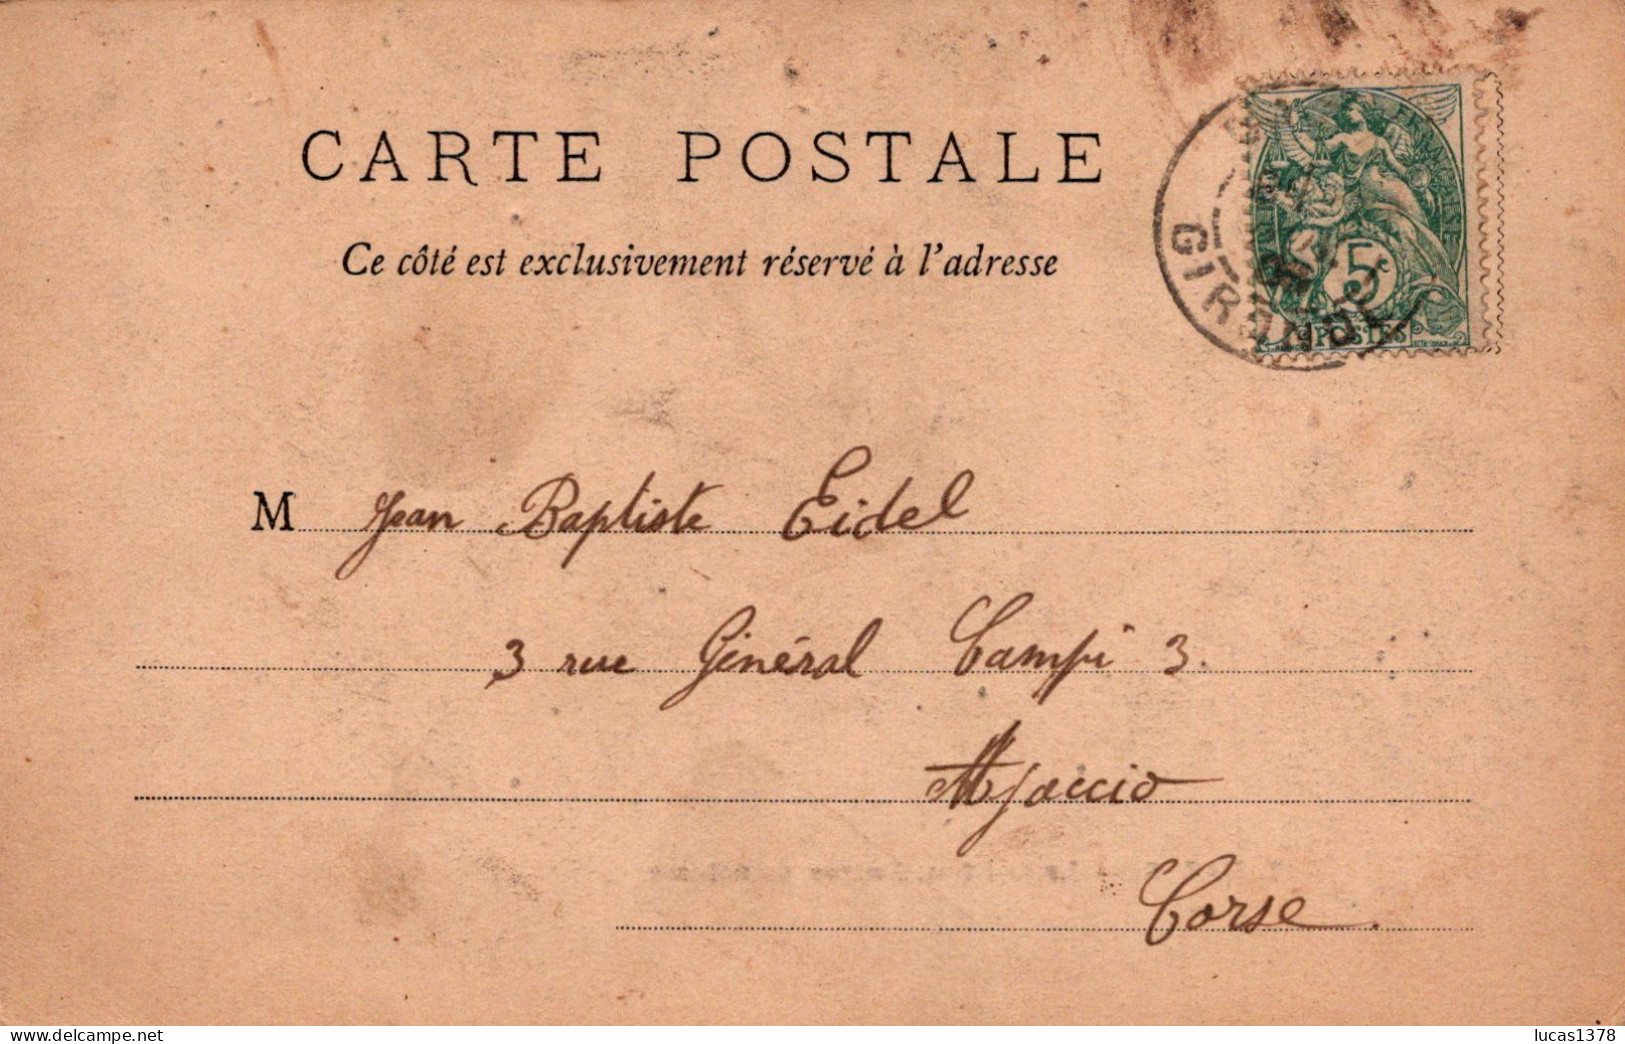 CARTE POSTALE
Ce côté est exclusivement réservé à l'adresse
GIRONDE
5
POSTES
M Jean Baptiste Eidel
3 rue Général Campi 3.
Ajaccio
Corse.
https://www.delcampe.net
lucas1378